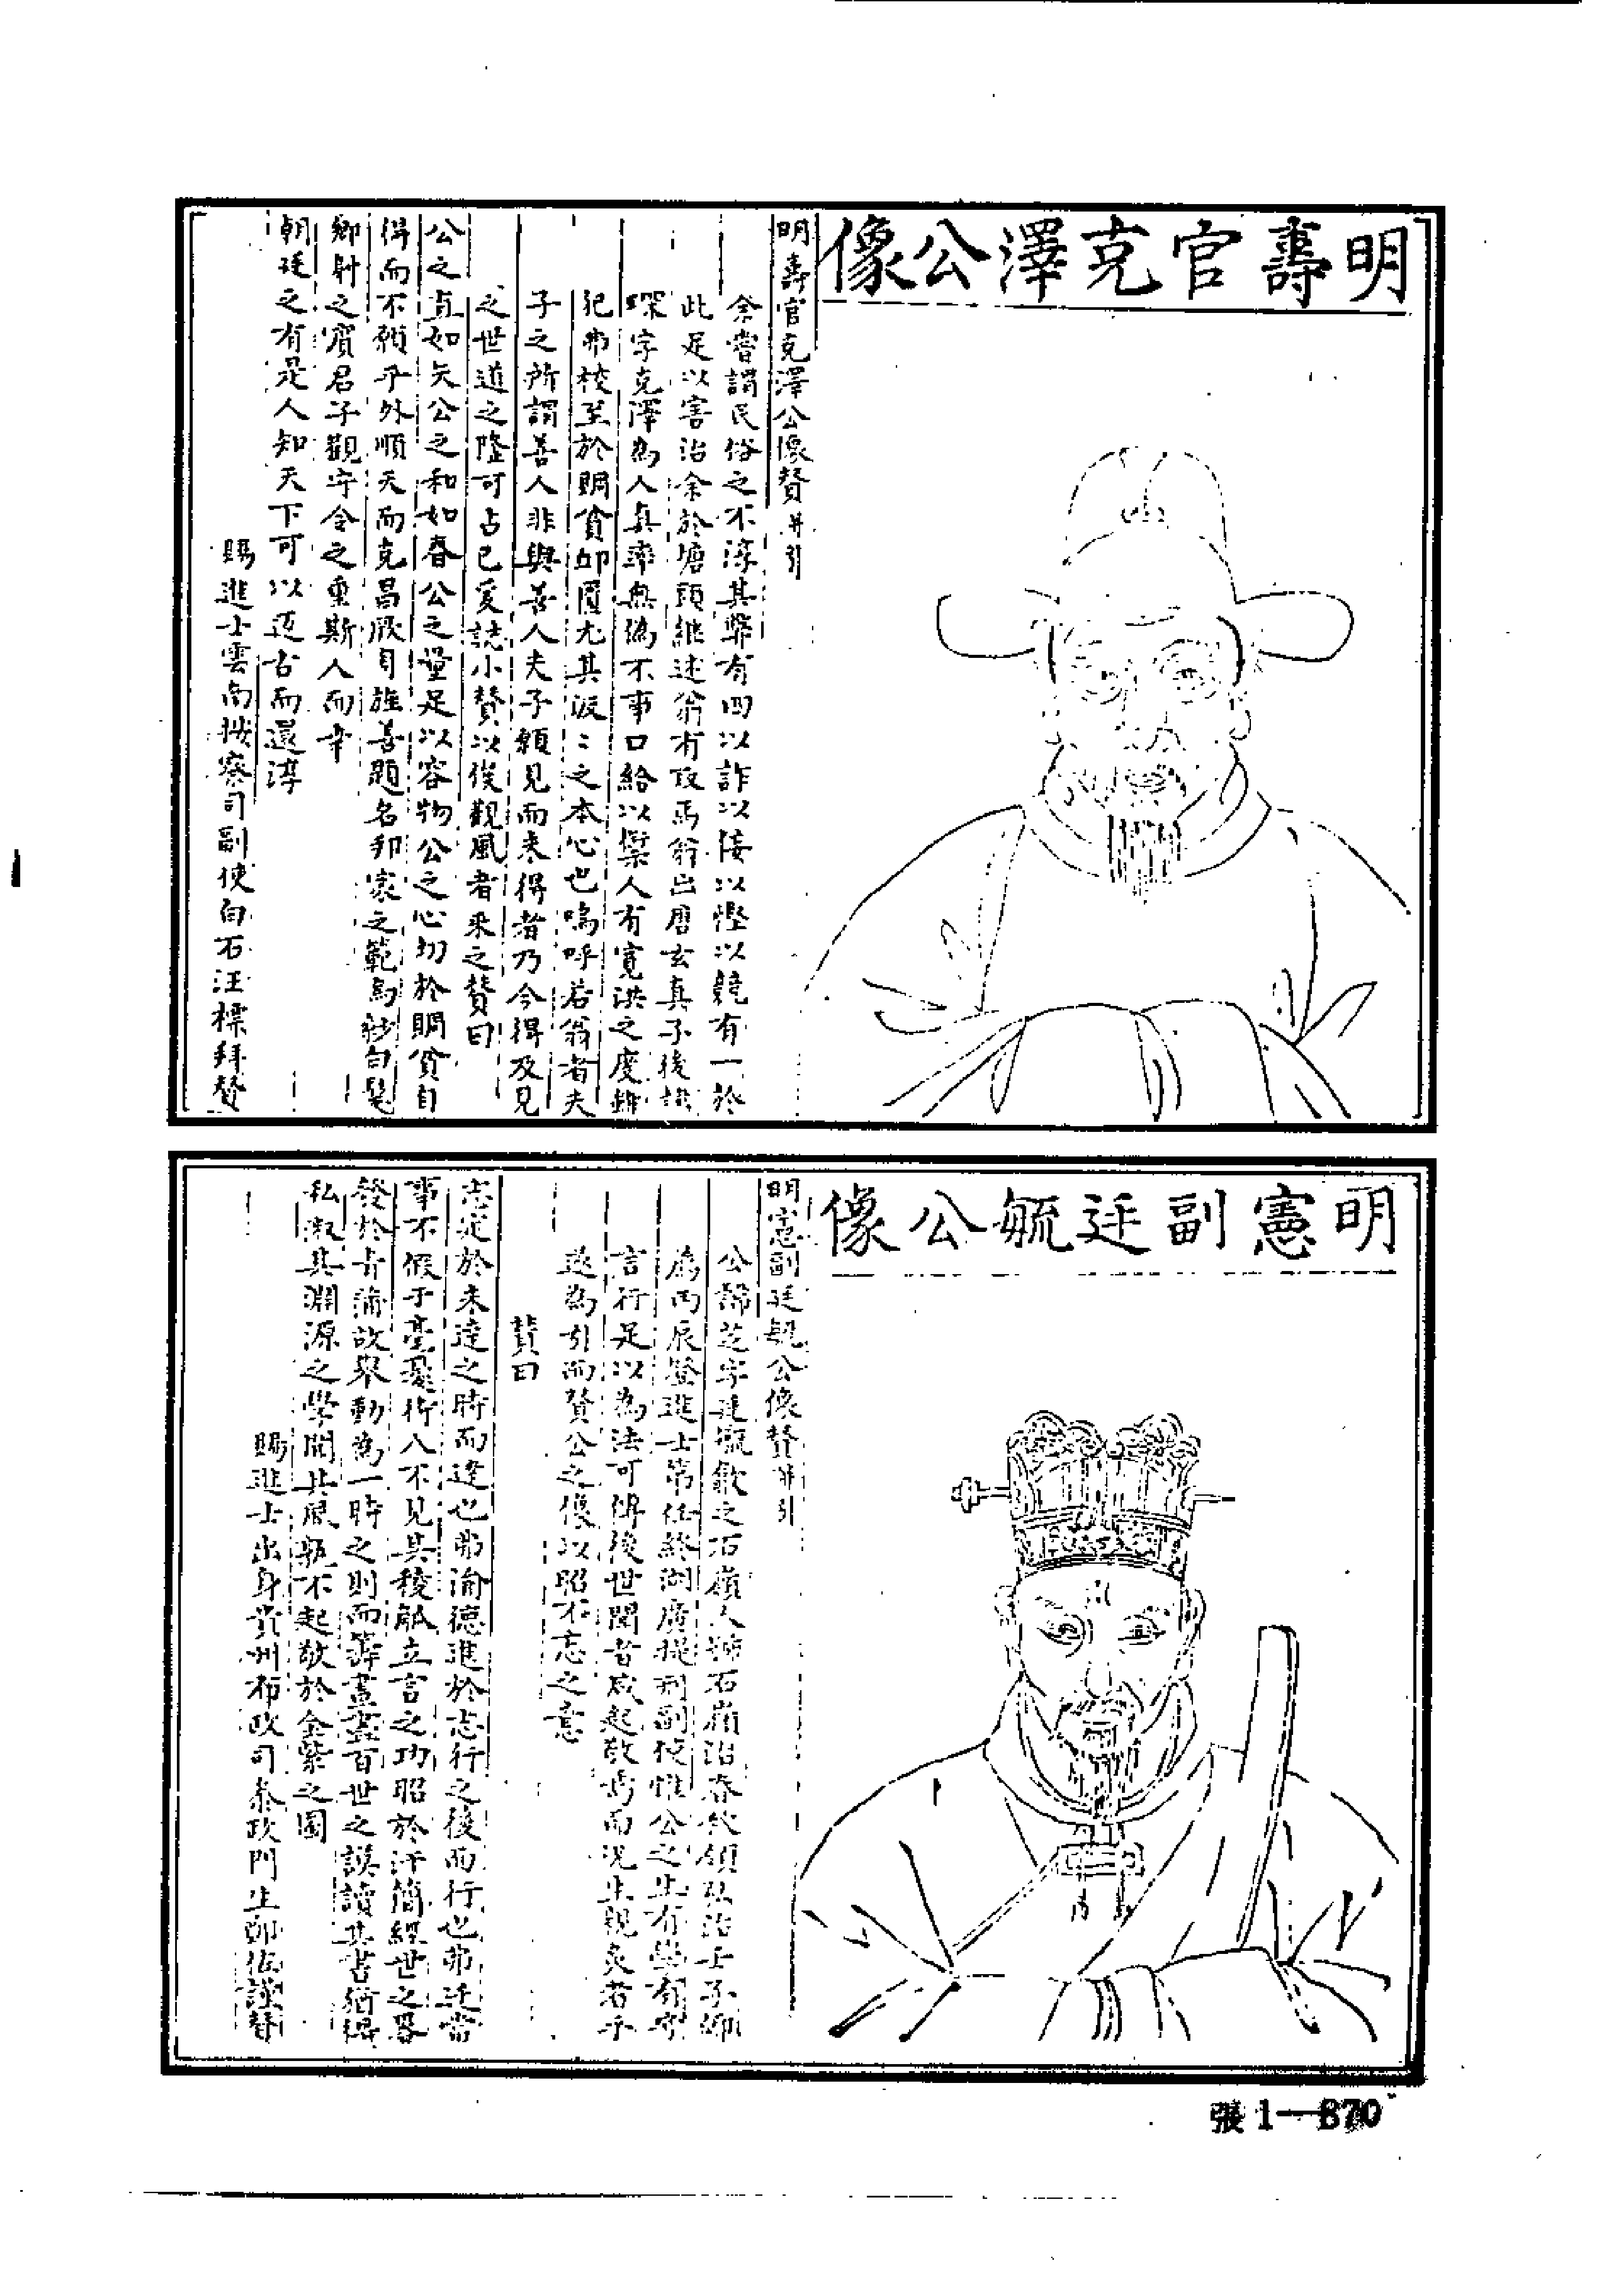 明壽官克澤公像
明壽官克澤公像贊并引
余嘗謂民俗之不淳其弊有四以詐以陵以慳以競有一於
此足以害治余於塘頭繼述翁有取焉翁出唐玄真子後諱
琛字克澤為人真率無偽不事口給以禦人有寬洪之度雖
犯弗校至於賙貧卹匱尤其汲汲之本心也嗚呼若翁者夫
子之所謂善人非與善人夫子願見而未得者乃今得及見
之世道之隆可占已爰誌小贊以俟觀風者采之贊曰
公之直如矢公之和如春公之量足以容物公之心切於賙貧自
得而不願乎外順天而克昌厥旌善題名邦家之範烏紗白髮
鄉射之賓君子觀守令之重斯人而幸
朝廷之有是人知天下可以邁古而還淳
賜進士雲南按察司副使白石汪標拜贊
明憲副廷毓公像
明憲副廷毓公像贊并引
公諱芝字廷毓歙之石嶺人治春秋領弘治壬子鄉
為丙辰登進士第任終湖廣提刑副使惟公之生有學有守
言行足以為法可傳後世聞者咸起敬焉而況生親炙者乎
遂為引而贊公之像以昭不忘之意
贊曰
志定於未達之時而達也弗渝德進於志行之後而行也弗迂當
事不假于臺憂待人不見其稜觚立言之功昭於汗簡經世之畧
發於青蒲故舉動為一時之則而籌畫盡百世之謨讀其書猶得
私淑其淵源之學聞其風孰不起敬於金紫之圖
賜進士出身貴州布政司叅政門生鄭佐謹贊
張1—870